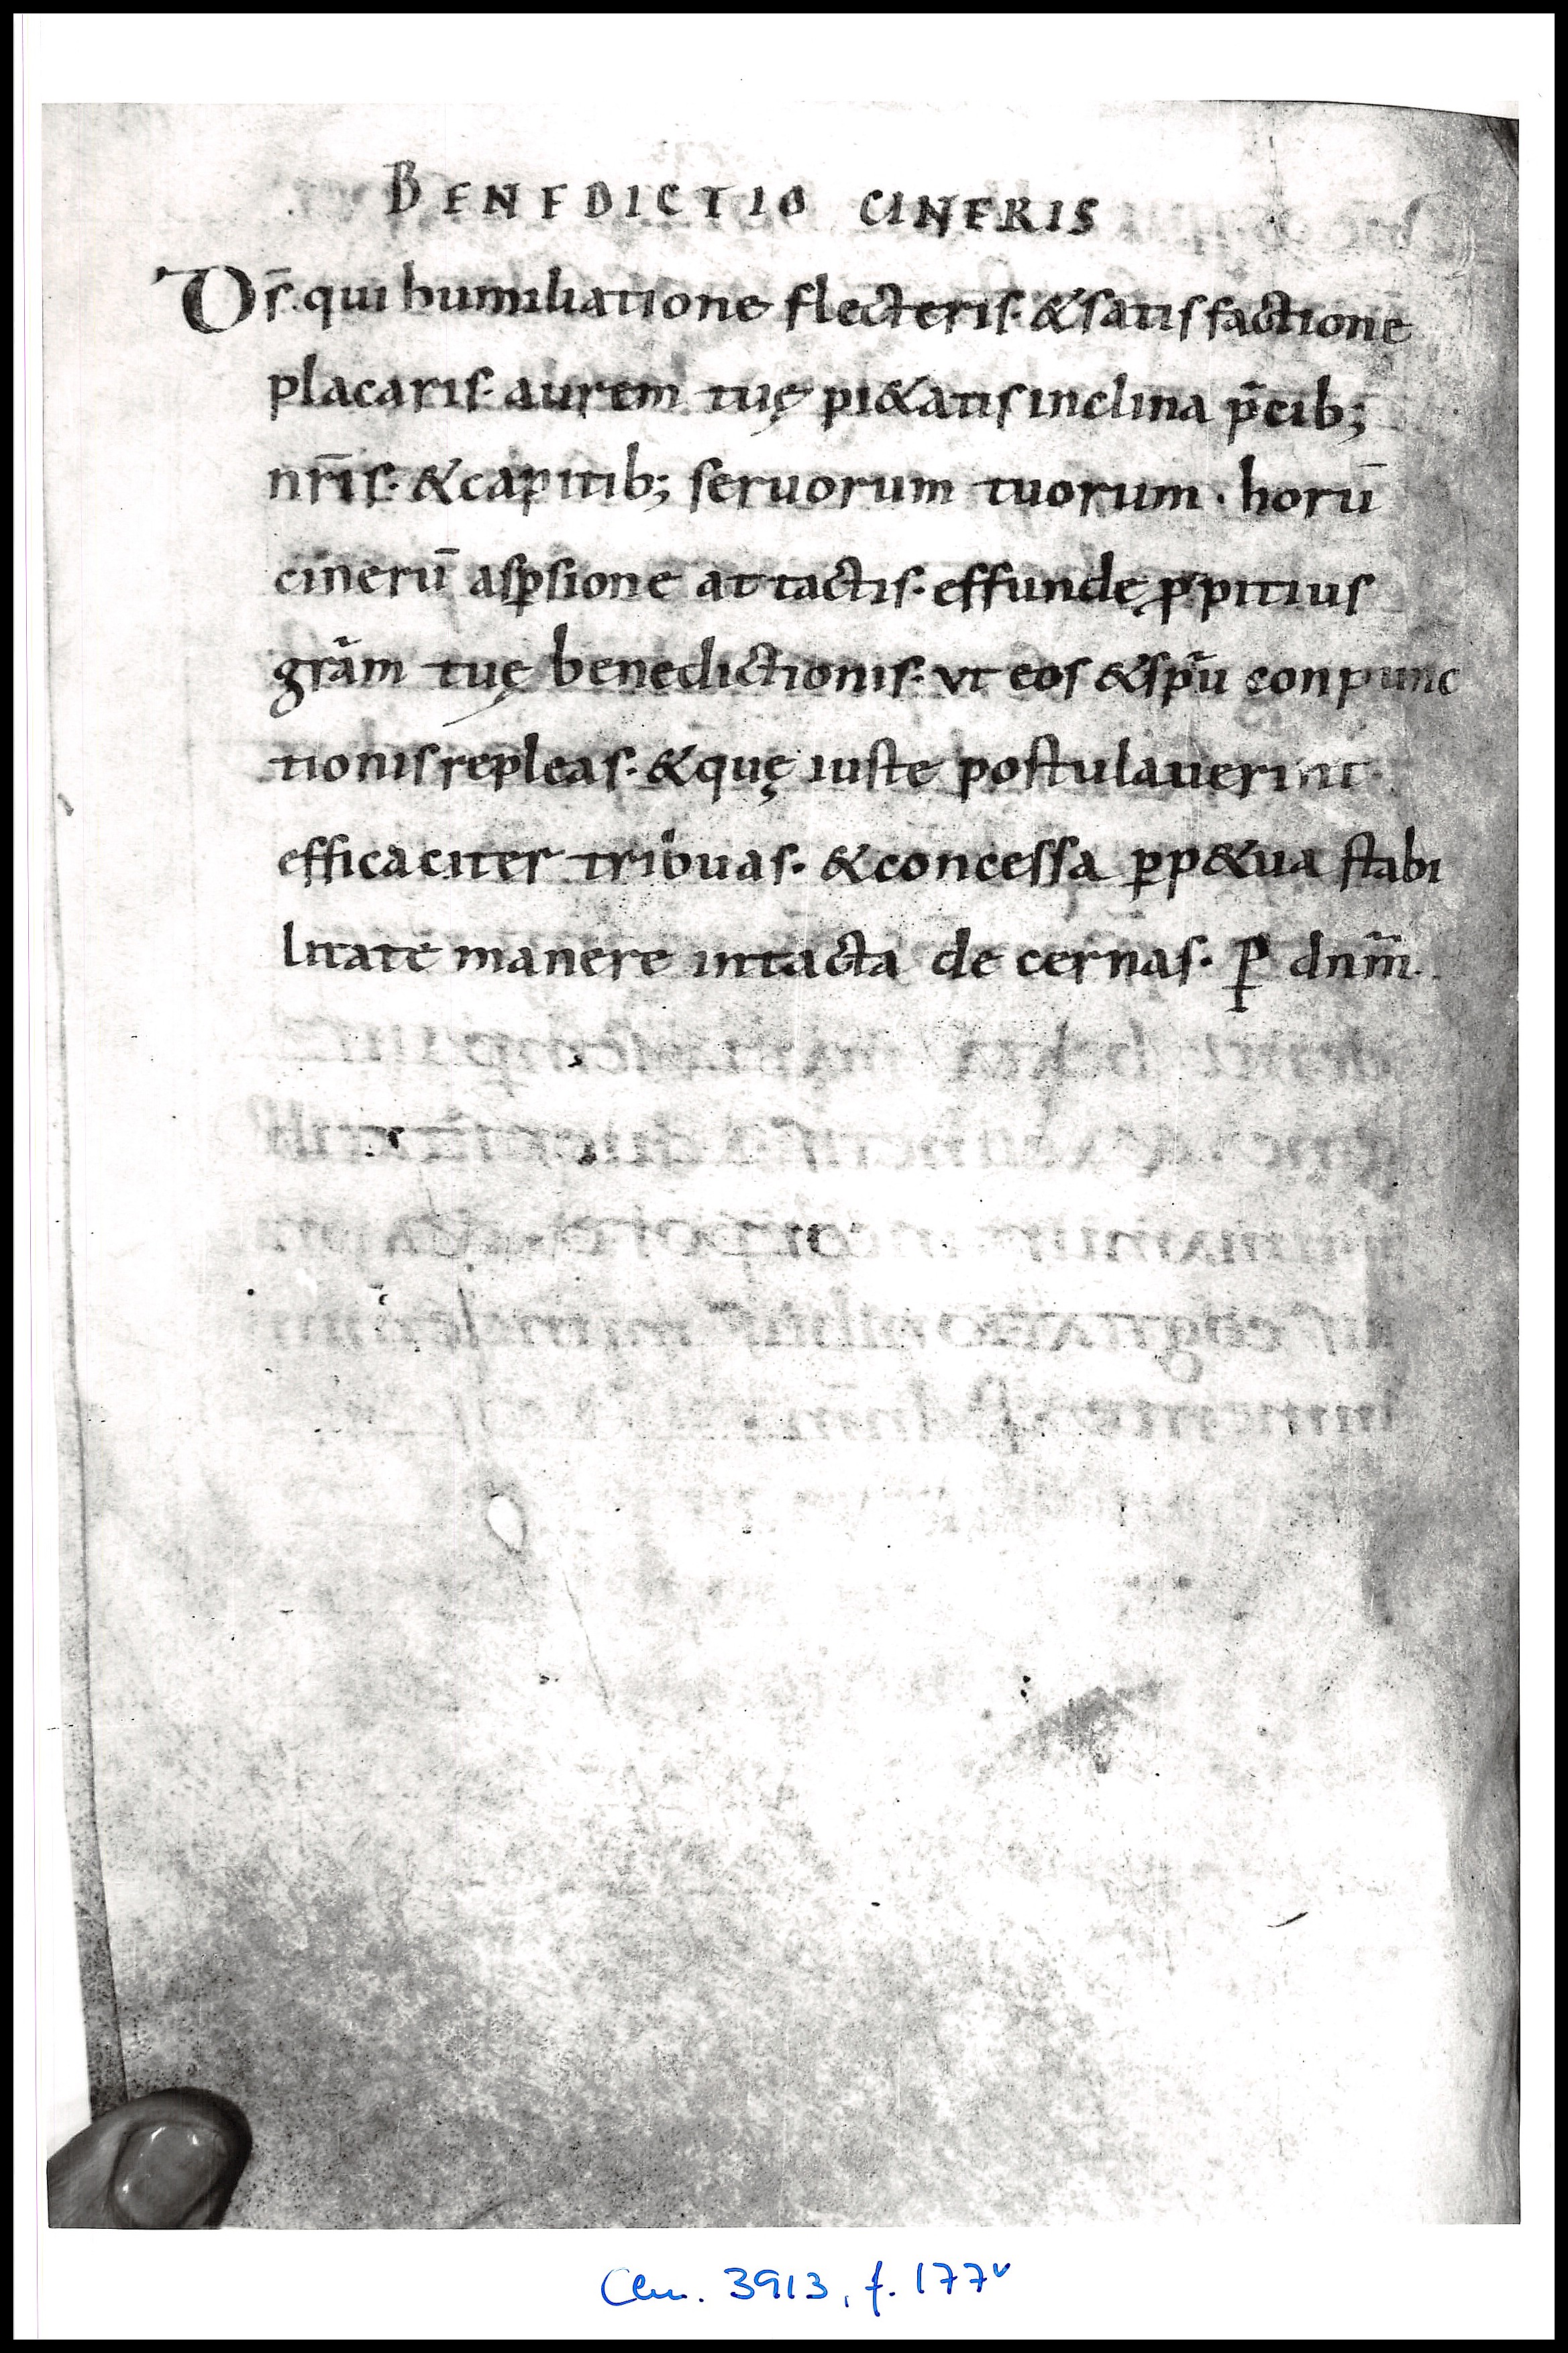 BENEDICTIO CINERIS
D̄s. qui humiliatione flecteris. & satisfactione
placaris. aurem tuę pi&atis inclina p̄cib;
nr̄is. & capitib; seruorum tuorum. horū
cinerū asꝑsione attactis. effundę ꝓpitius
gr̄am tuę benedictionis. vt eos & sp̄u conpunc
tionis repleas. & quę iuste postulauerint
efficaciter tribuas. & concessa ꝑp&ua stabi
litate manere intacta decernas. P̱ dn̄m.
Clm. 3913, f. 177v